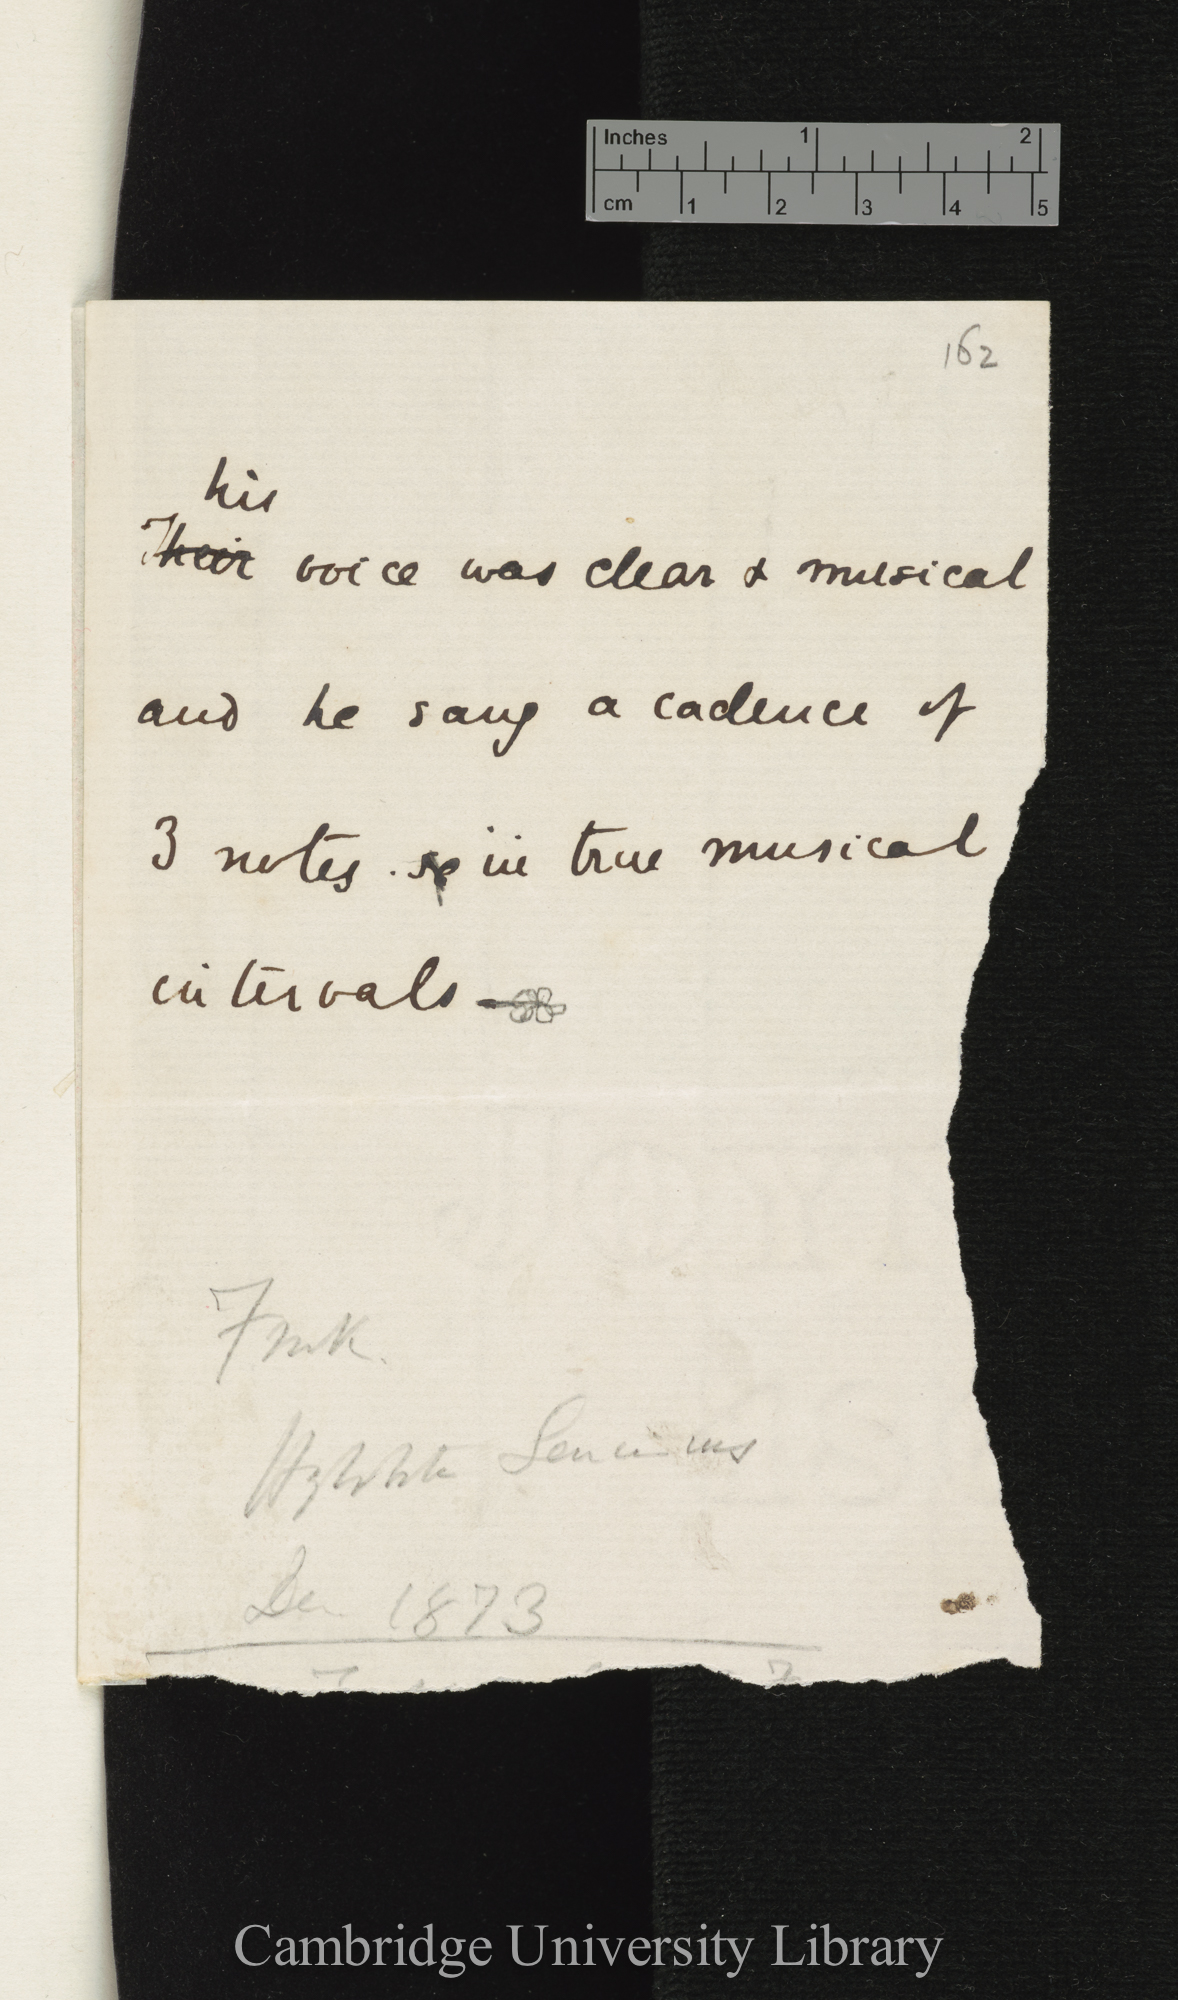 Inches 1 2
cm 1 2 3 4 5
162
his
Their voice was clear & musical
and he sang a cadence of
3 notes. in true musical
intervals
1873
Cambridge University Library